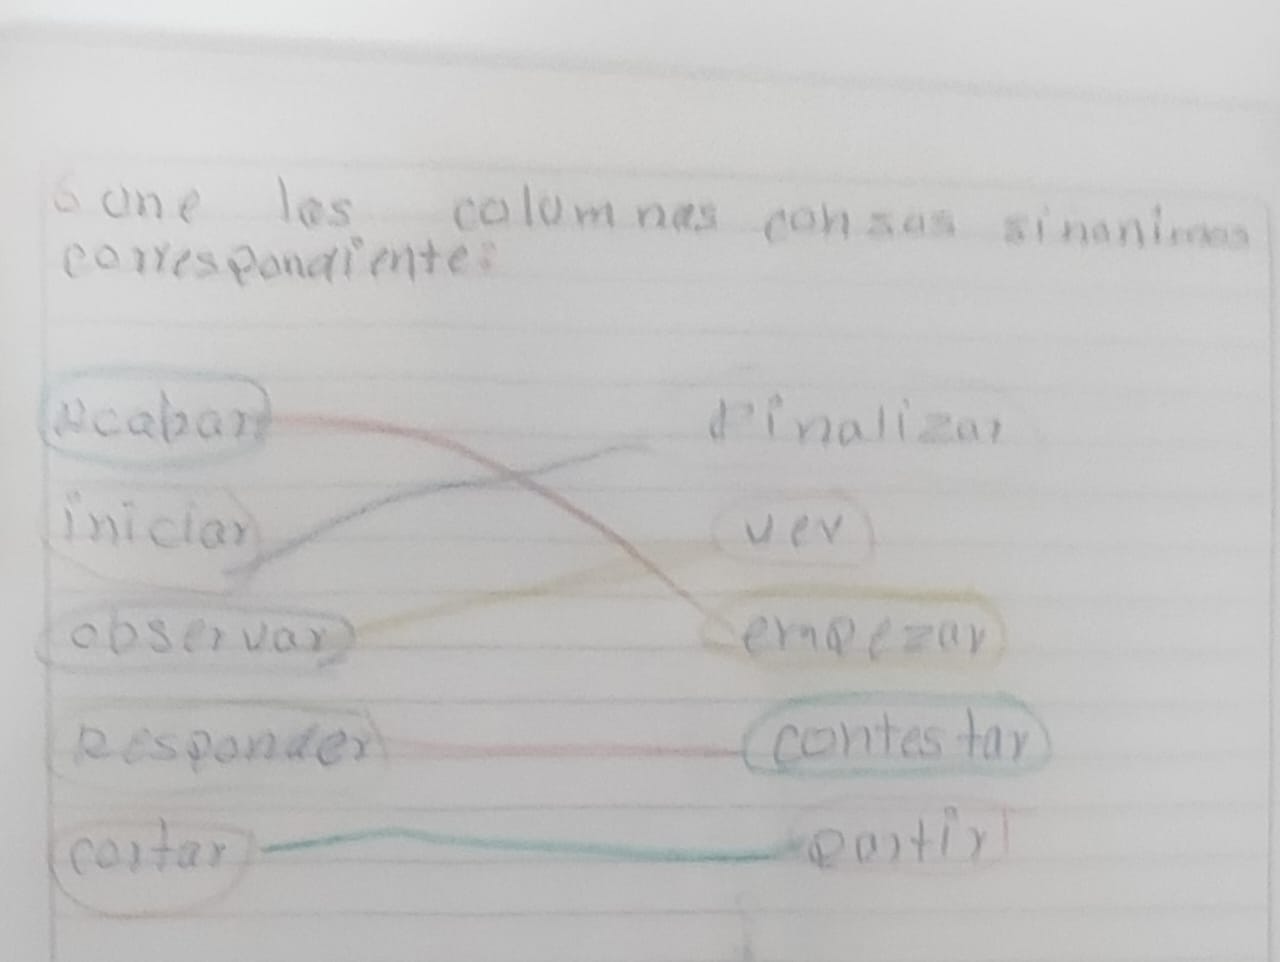 6 une las columnas con sus sinonimos
correspondiente:
Acabar finalizar
iniciar ver
observar empezar
Responder contestar
cortar partir